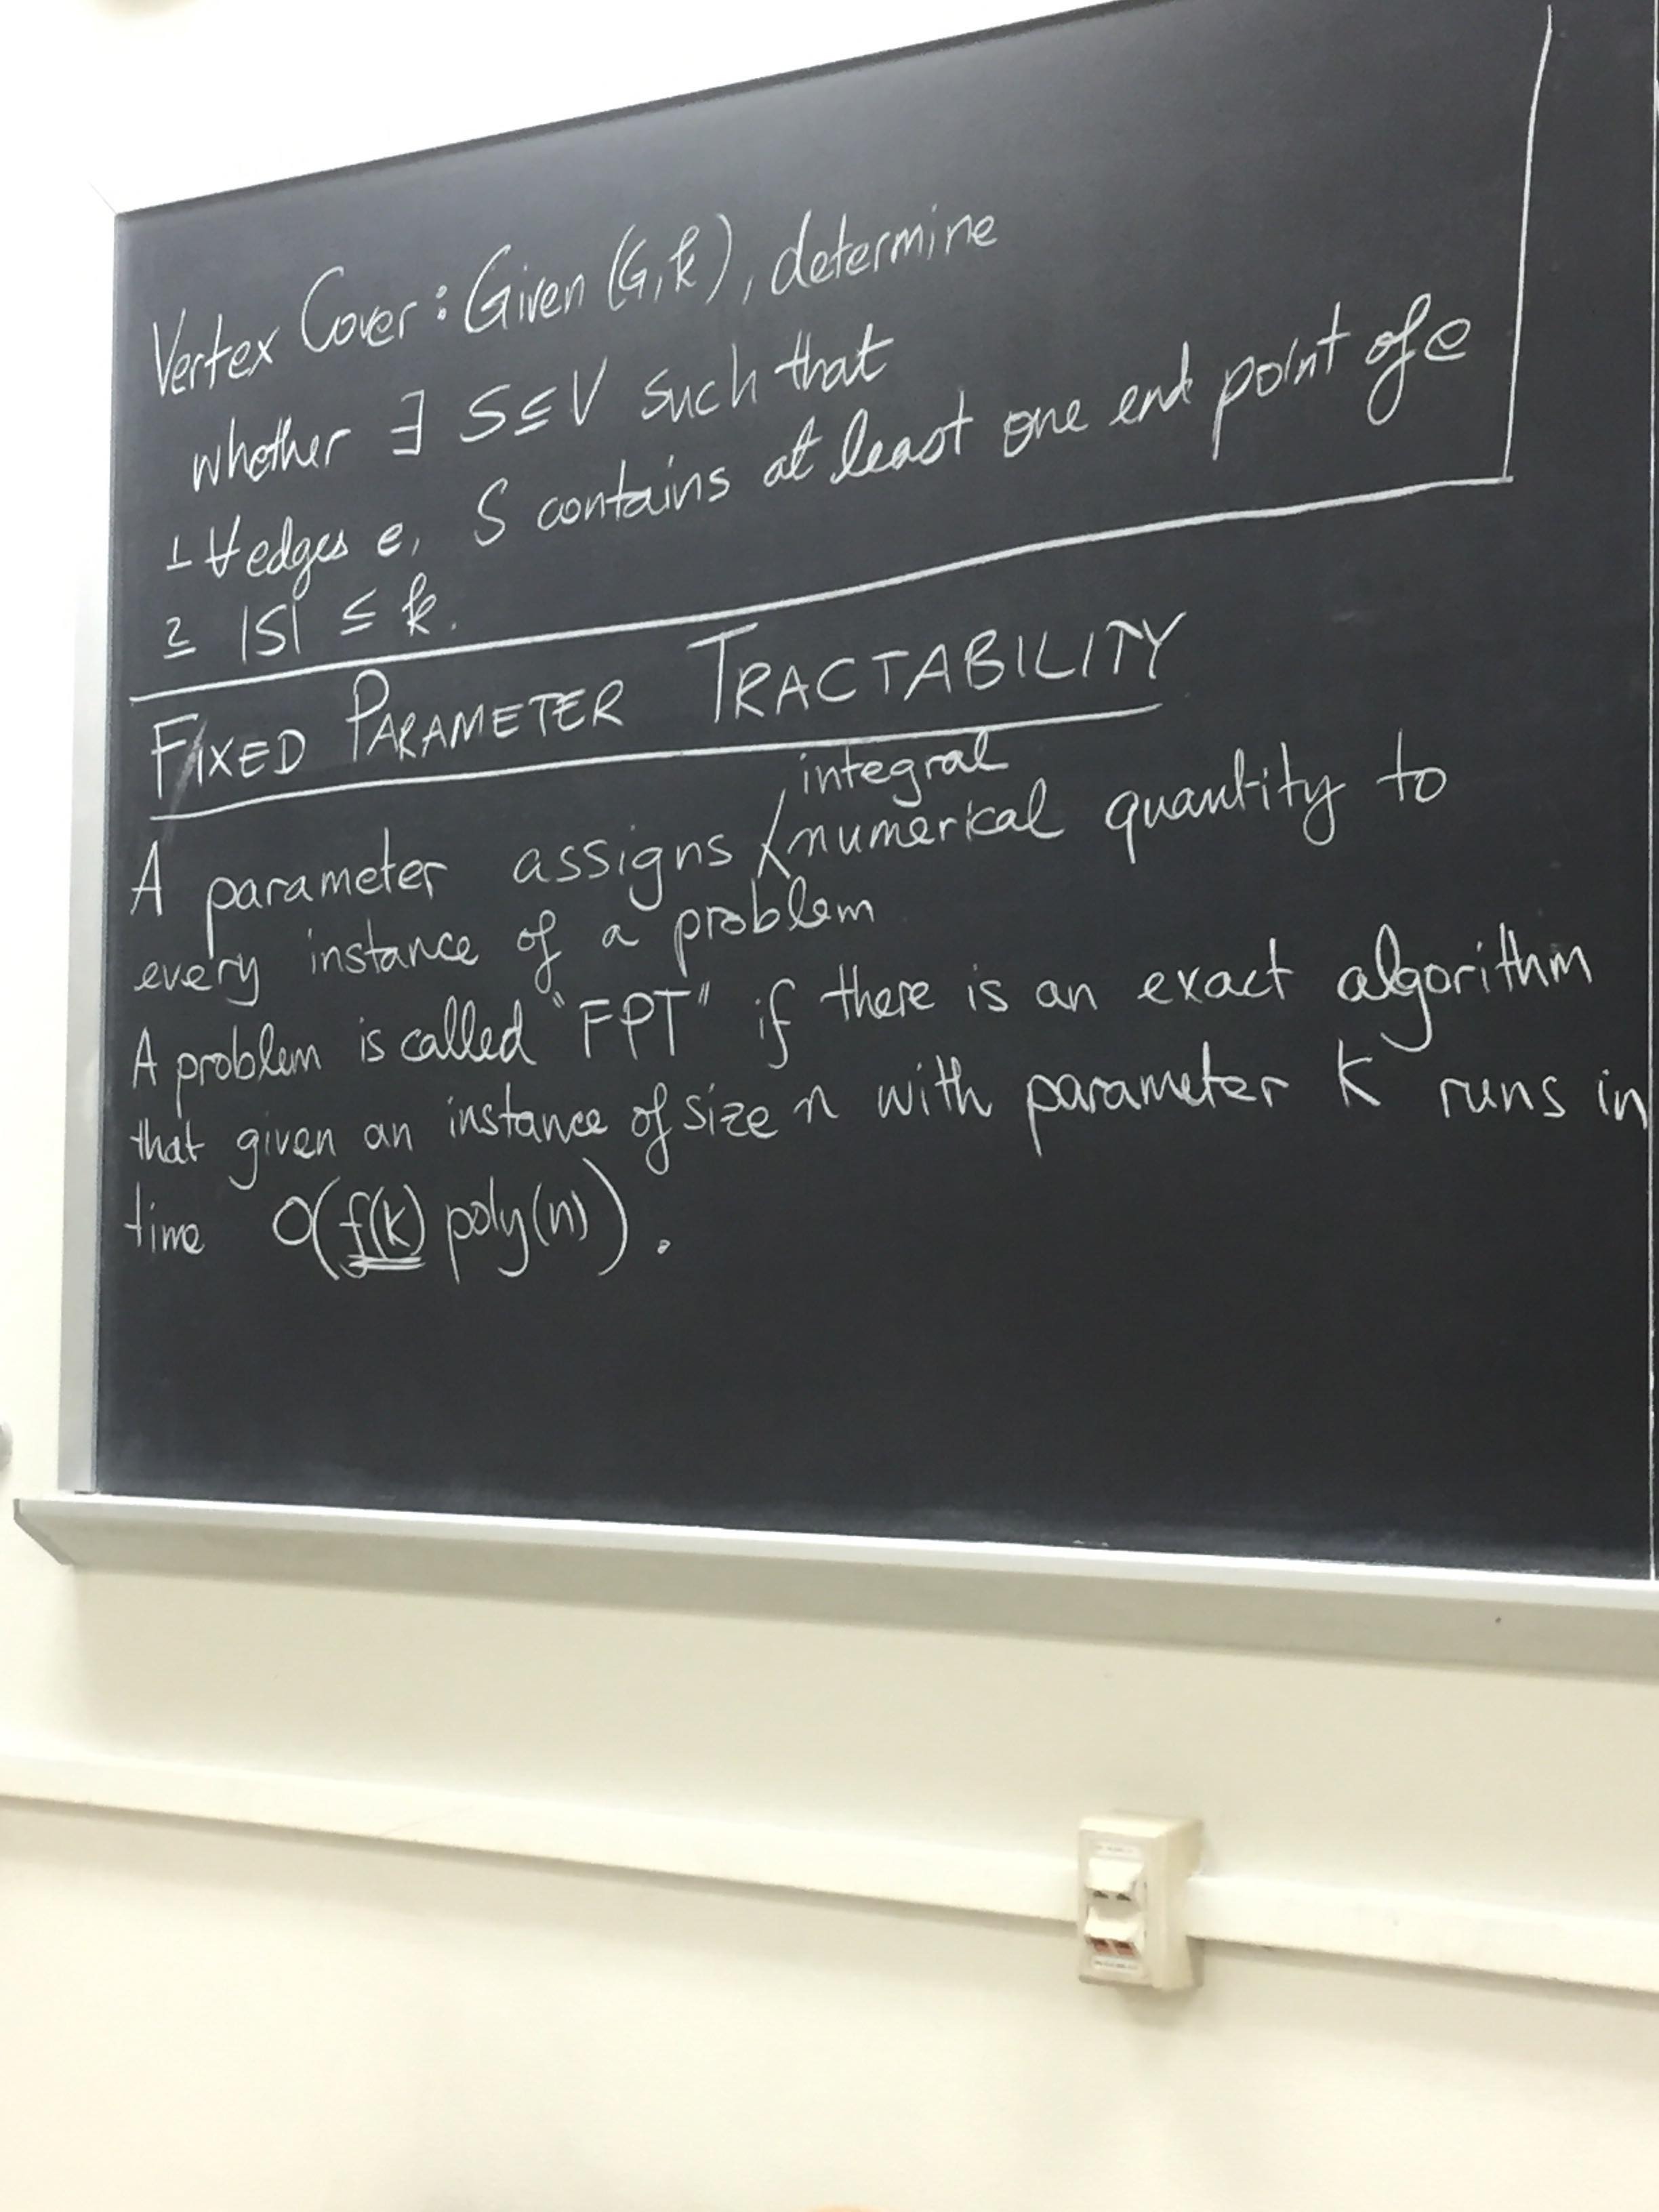 Vertex Cover: Given (G,k), determine
whether ∃ S⊆V such that
1 ∀edges e, S contains at least one end point of e
2 |S| ≤ k.
FIXED PARAMETER TRACTABILITY
integral
A parameter assigns numerical quantity to
every instance of a problem
A problem is called "FPT" if there is an exact algorithm
that given an instance of size n with parameter k runs in
time O(f(k) poly(n)).